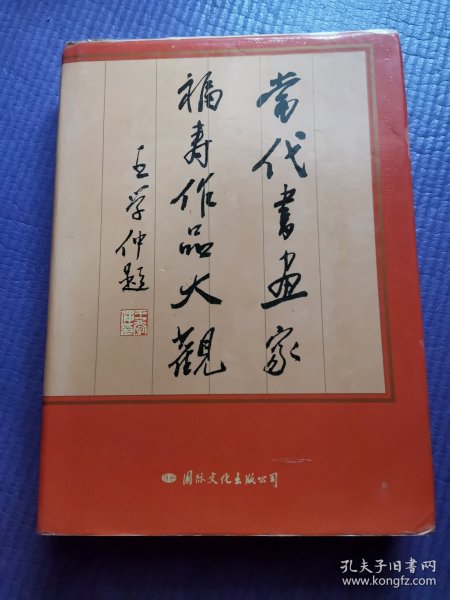 當代書画家
福寿作品大觀
王学仲题
国际文化出版公司
孔夫子旧书网
www.kongfz.com